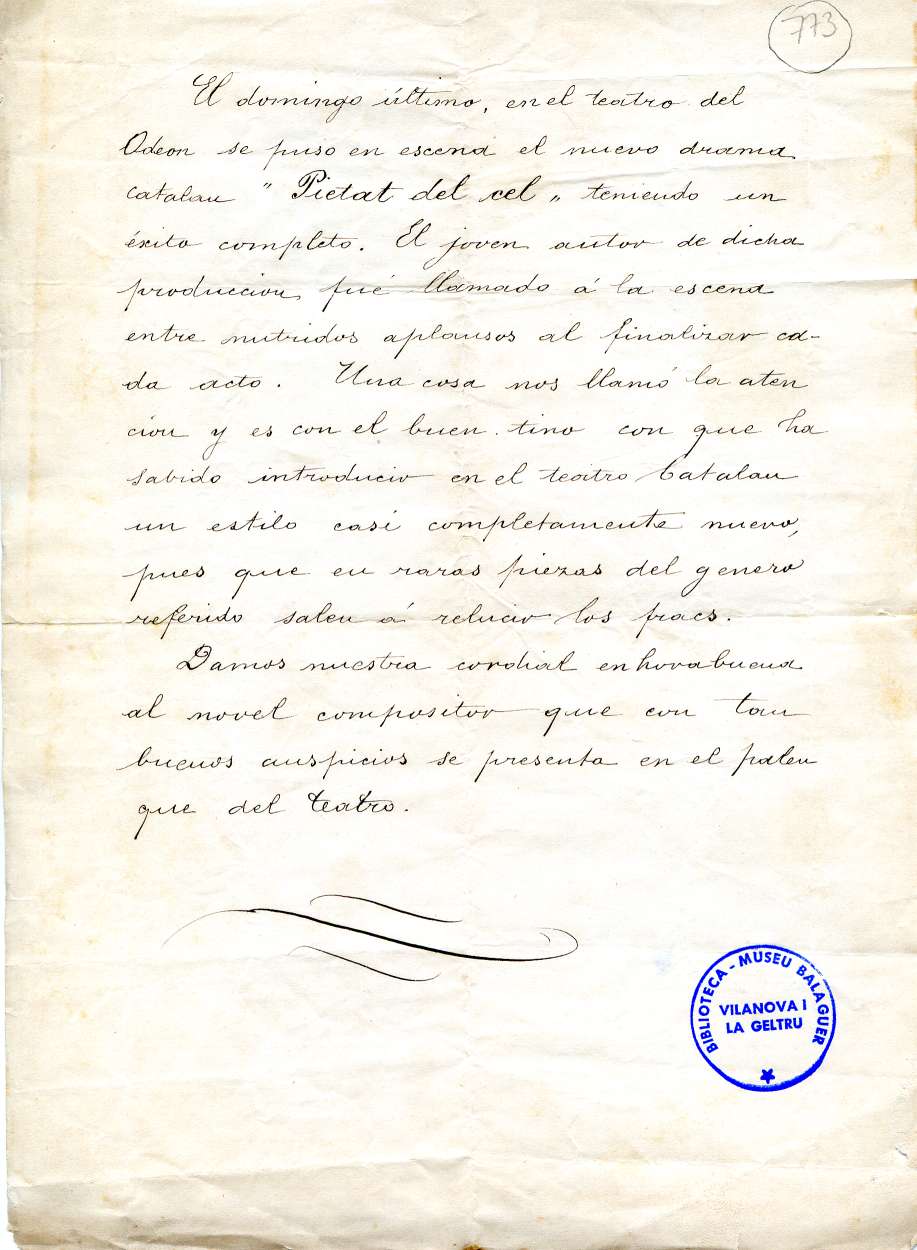 773
El domingo último, en el teatro del
Odeon se puso en escena el nuevo drama
catalan " Pietat del cel „ teniendo un
éxito completo. El joven autor de dicha
produccion fué llamado á la escena
entre nutridos aplausos al finalizar ca-
da acto. Una cosa nos llamó la aten
cion y es con el buen tino con que ha
sabido introducir en el teatro Catalan
un estilo casi completamente nuevo,
pues que en raras piezas del genero
referido salen á relucir los fracs.
Damos nuestra cordial enhorabuena
al novel compositor que con tan
buenos auspicios se presenta en el palen
que del teatro.
BIBLIOTECA - MUSEU BALAGUER
VILANOVA I
LA GELTRU